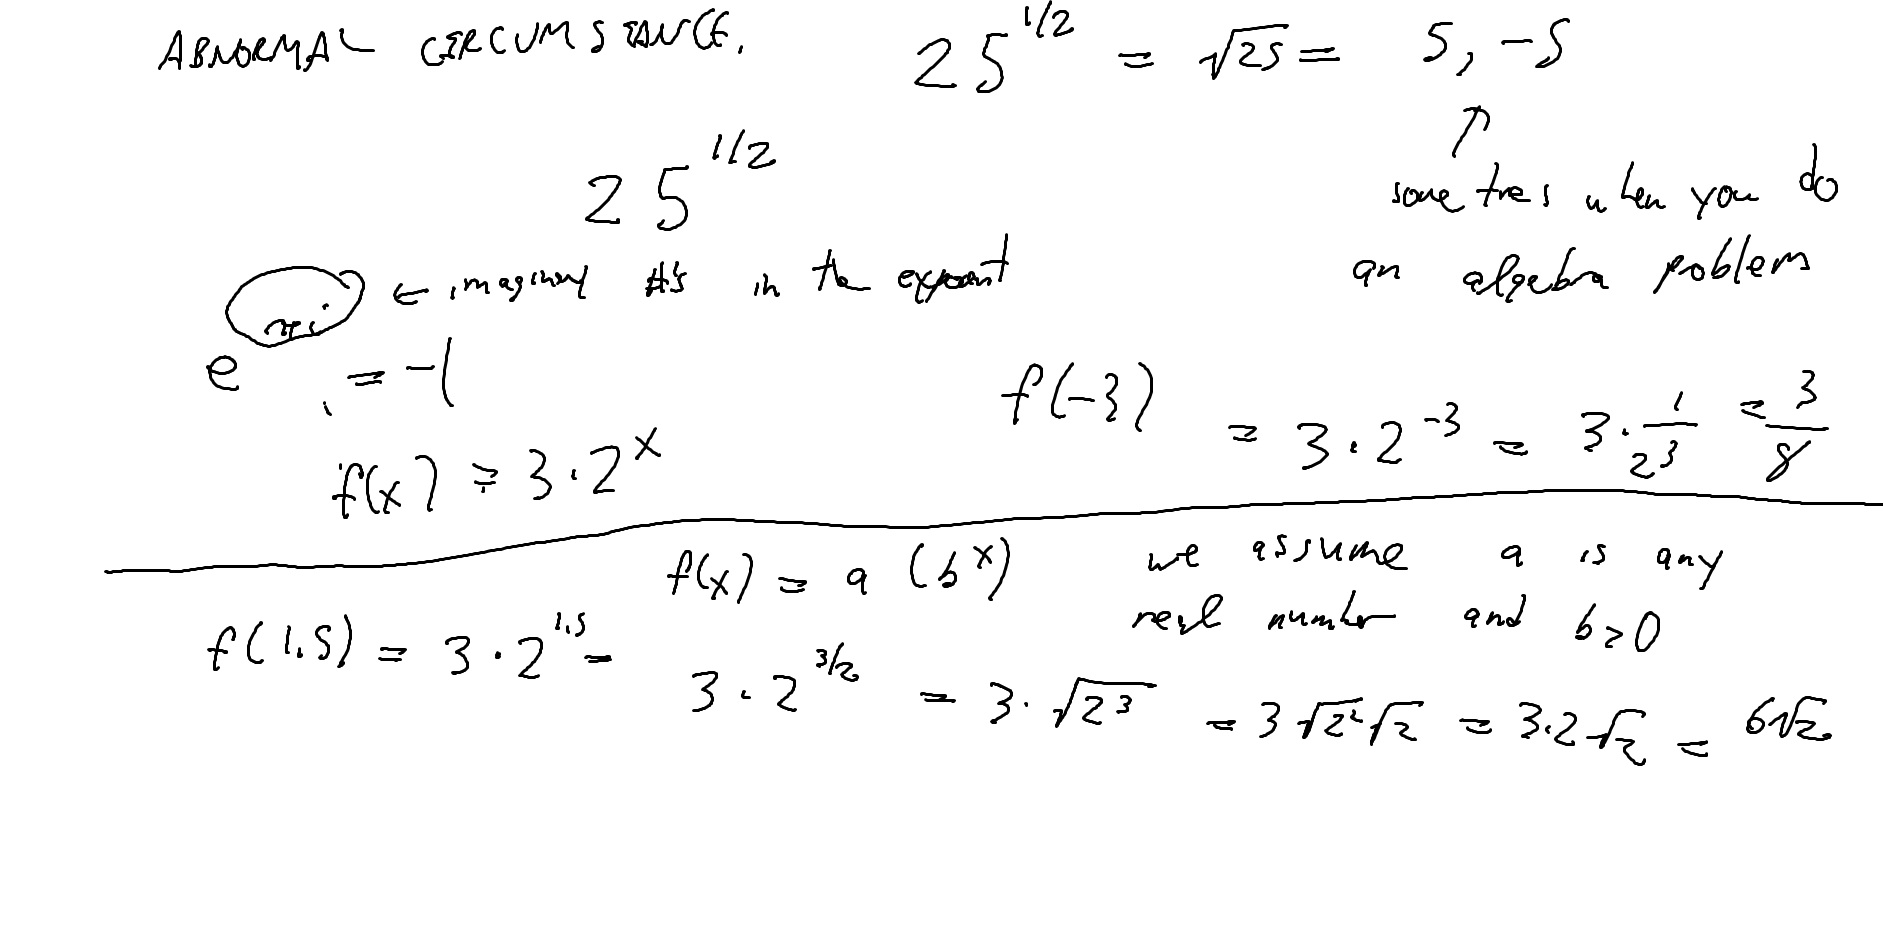 ABNORMAL CIRCUMSTANCE. 25^{1/2} = √25 = 5, -5
25^{1/2} ↑
sometimes when you do
← imaginary #'s in the exponent an algebra problem
e^{πi} = -1
f(x) = 3·2^x f(-3) = 3·2^{-3} = 3·1/2^3 = 3/8
f(x) = a (b^x) we assume a is any
real number and b>0
f(1.5) = 3·2^{1.5} = 3·2^{3/2} = 3·√2^3 = 3√2^2√2 = 3·2√2 = 6√2